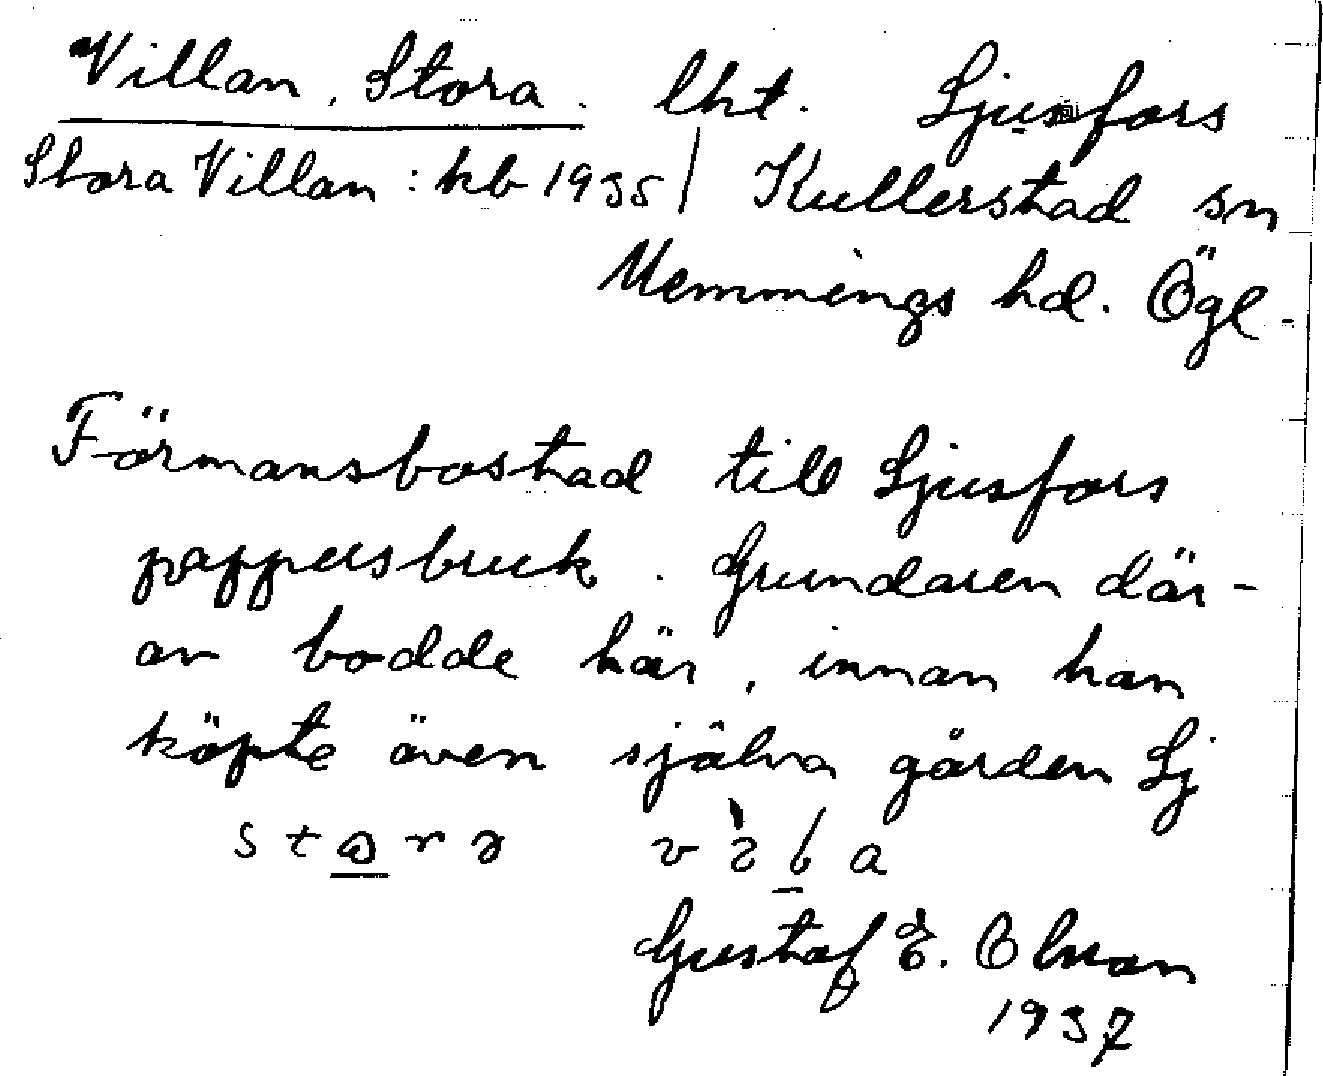 Villan, Stora. lht. Ljusfors
Stora Villan : kb 1935 / Kullerstad sn
Memmings hd. Ögl.
Förmansbostad till Ljusfors
pappersbruk. Grundaren där-
av bodde här, innan han
köpte även själva gården Lj
Gustaf E. Olsson
1937